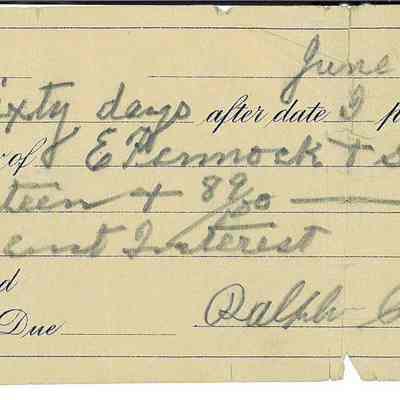 June
ixty days after date I p
of E Pennock & S
teen + 89/100
ent Interest
d
Ralph C
Due